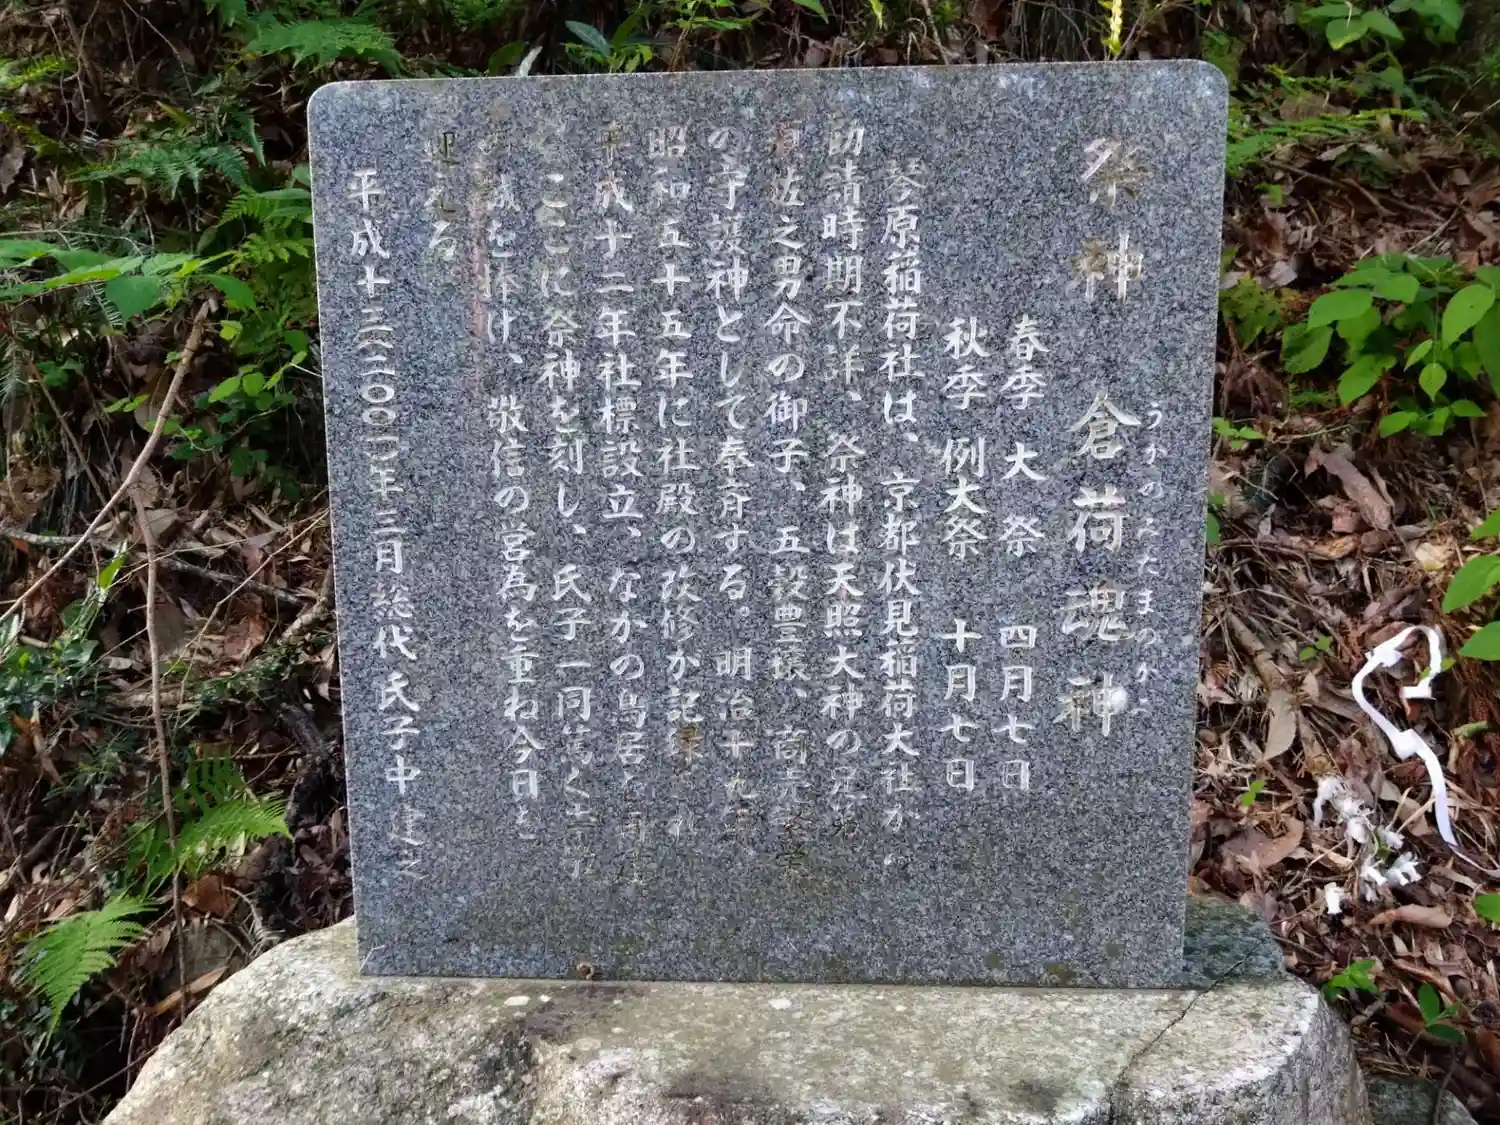 祭神 倉荷魂神
うかのみたまのかみ
春季大祭 四月七日
秋季例大祭 十月七日
琴原稲荷社は、京都伏見稲荷大社が
勧請時期不詳、祭神は天照大神の兄弟
須佐之男命の御子、五穀豊穣、商売繁営
の守護神として奉斉する。明治十九年
昭和五十五年に社殿の改修が記録され
平成十二年社標設立、なかの鳥居を
ここに祭神を刻し、氏子一同篤く
誠を捧け、敬信の営為を重ね今日を
迎える
平成十三(二〇〇一)年三月総代氏子中 建之